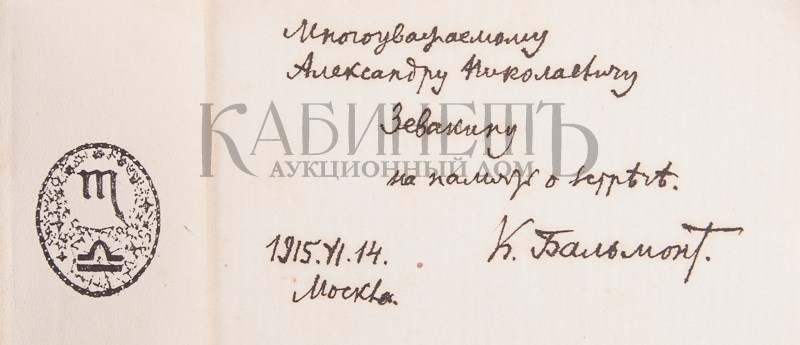 Многоуважаемому
Александру Николаевичу
Зевакину
на память о встрѣчѣ.
К. Бальмонт.
1915.VI.14.
Москва.
КАБИНЕТЪ
АУКЦИОННЫЙ ДОМ
♏
♎